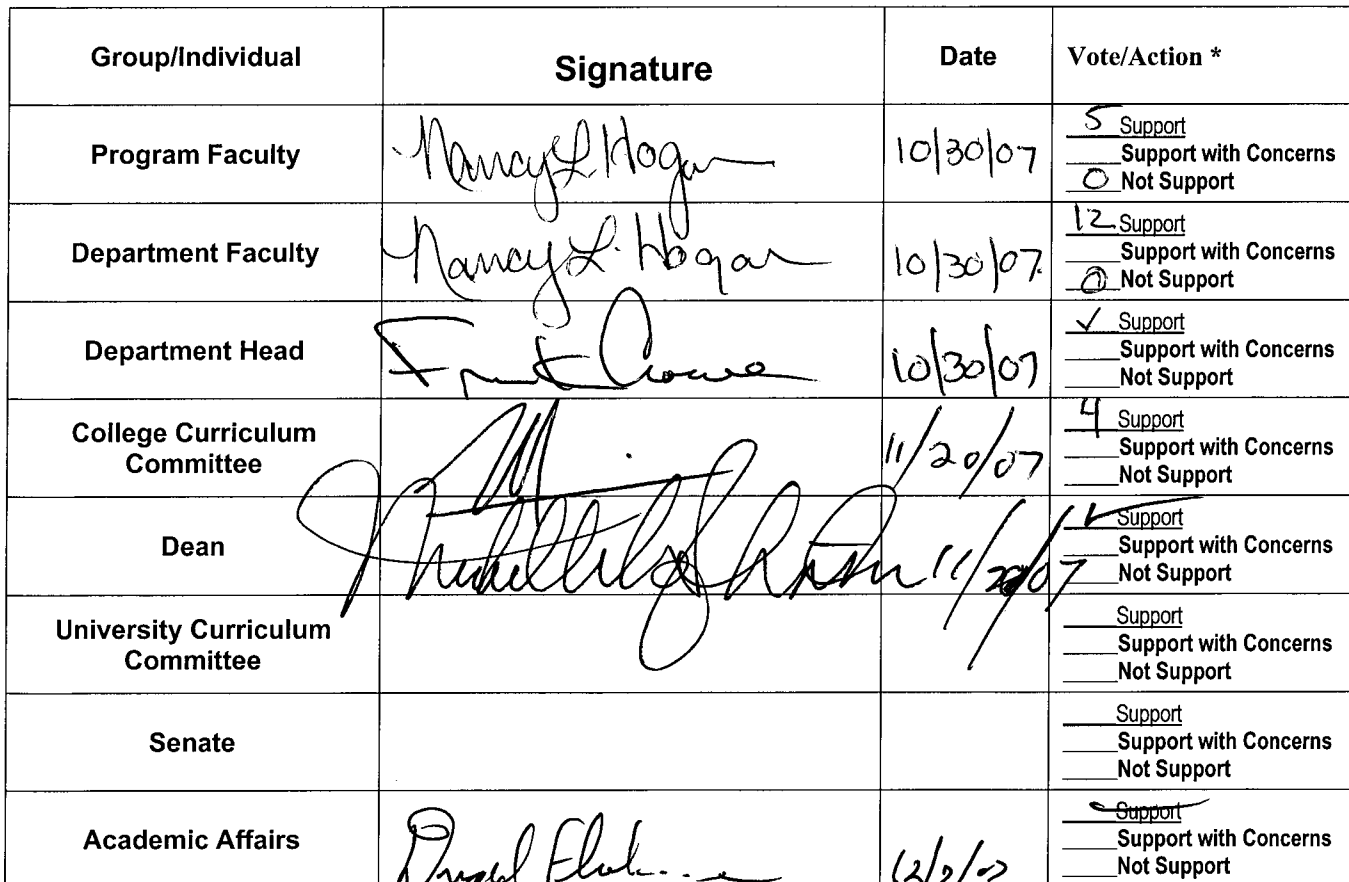 Group/Individual Signature Date Vote/Action *
Program Faculty Nancy L. Hogan 10/30/07 5 Support
____Support with Concerns
0 Not Support
Department Faculty Nancy L. Hogan 10/30/07 12 Support
____Support with Concerns
0 Not Support
Department Head 10/30/07 ✓ Support
____Support with Concerns
____Not Support
College Curriculum
Committee 11/20/07 4 Support
____Support with Concerns
____Not Support
Dean 11/20/07 ✓ Support
____Support with Concerns
____Not Support
University Curriculum
Committee ____Support
____Support with Concerns
____Not Support
Senate ____Support
____Support with Concerns
____Not Support
Academic Affairs Support
____Support with Concerns
____Not Support